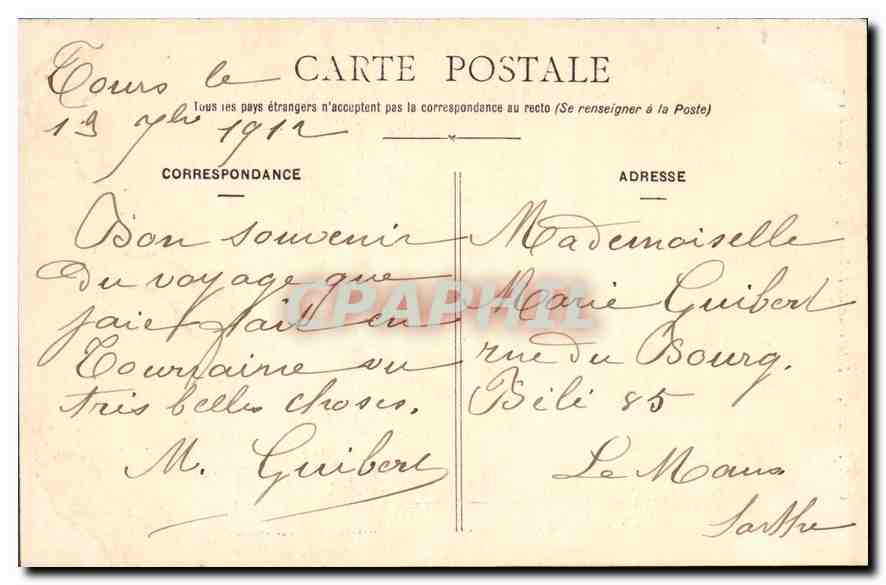 Tours le
19 7bre 1912
CARTE POSTALE
Tous les pays étrangers n'acceptent pas la correspondance au recto (Se renseigner à la Poste)
CORRESPONDANCE
Bon souvenir
du voyage que
jaie fait en
Tourraine vu
tris belles choses.
M. Guibert
ADRESSE
Mademoiselle
Marie Guibert
rue du Bourg.
Bélé 85
Le Mans
Sarthe
CPAPHIL